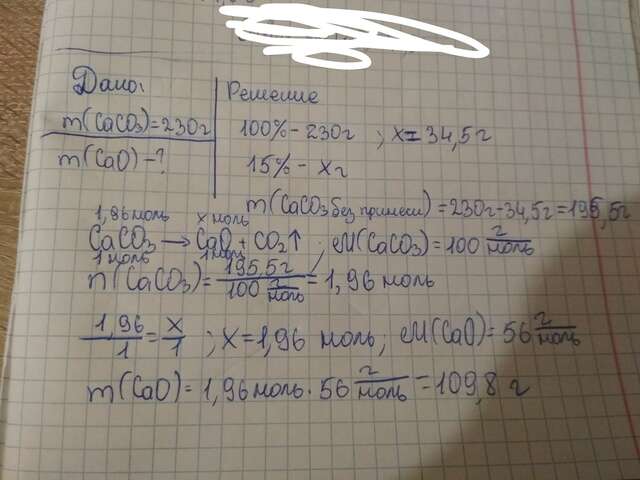 Дано:
m(CaCO₃)=230г
m(CaO)-?
Решение
100% - 230г ; x = 34,5г
15% - xг
m(CaCO₃ без примеси) = 230г-34,5г=195,5г
1,86 моль x моль
CaCO₃ → CaO + CO₂↑ ; M(CaCO₃)=100 г/моль
1 моль 1 моль
n(CaCO₃)= 195,5г / 100 г/моль = 1,96 моль
1,96/1 = x/1 ; x=1,96 моль; M(CaO)=56 г/моль
m(CaO)= 1,96моль · 56 г/моль = 109,8 г